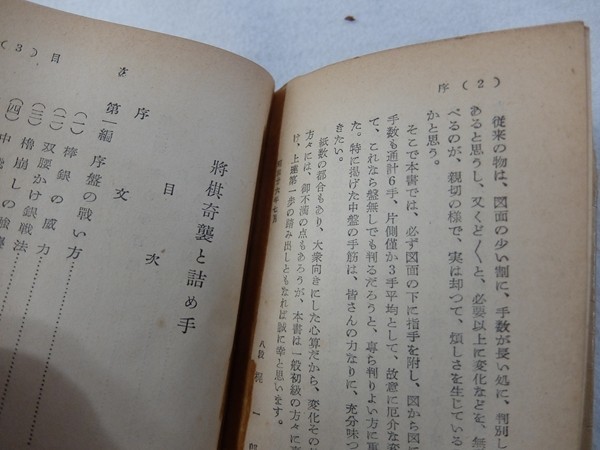 (2) 序
従来の物は、図面の少い割に、手数が長い処に、判別し
あると思うし、又くど〱と、必要以上に変化などを、無
べるのが、親切の様で、実は却つて、煩しさを生じている
かと思う。
そこで本書では、必ず図面の下に指手を附し、図から図に
手数も通計6手、片側僅か3手平均として、故意に厄介な変
て、これなら盤無しでも判るだろうと、専ら判りよい方に重
た。特に掲げた中盤の手筋は、皆さんの力なりに、充分味つ
きたい。
紙数の都合もあり、大衆向きにした心算だから、変化その
方々には、御不満の点もあろうが、本書は一般初級の方々に
け、上達第一歩の踏み出しともなれば誠に幸と思います。
八段 梶 一 郎
(3) 目 次
將棋奇襲と詰め手
目 次
序 文
第一編 序盤の戦い方
(一) 棒銀の威力
(二) 双腰かけ銀戦法
(三) 櫓崩しの
(四) 中